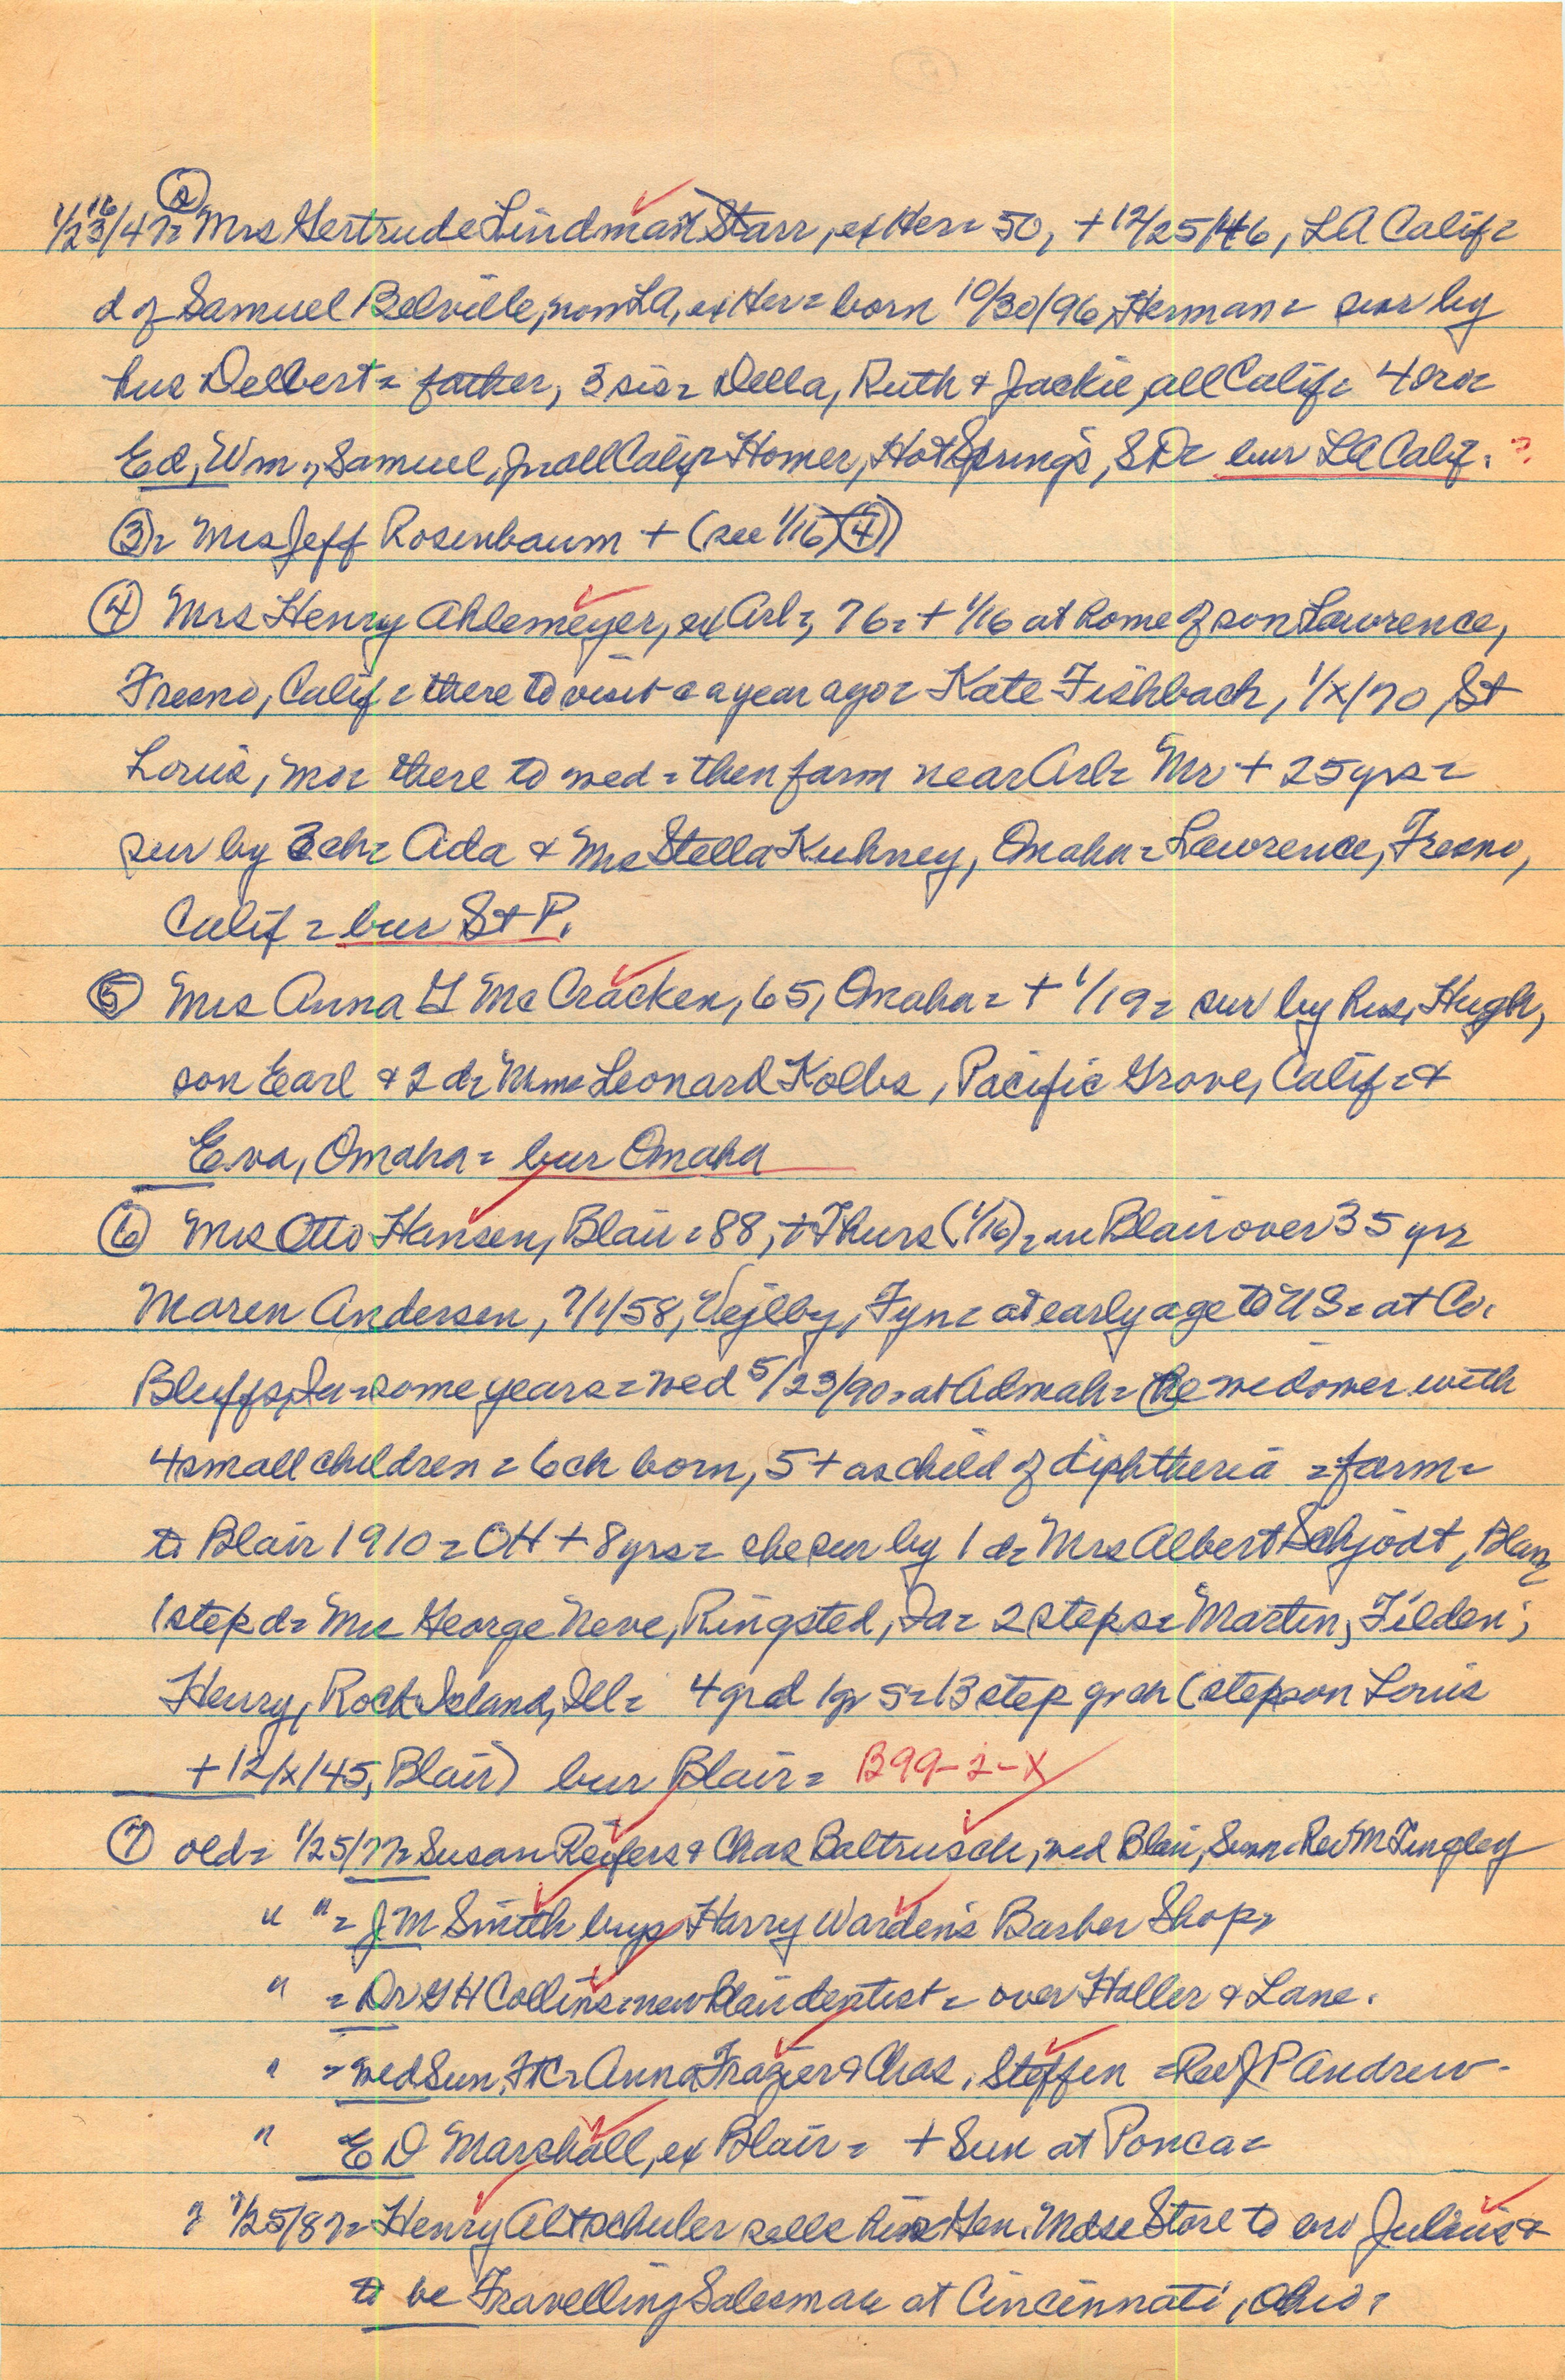 1/23/47= ② Mrs Gertrude Lindman Starr, ex Her= 50, + 12/25/46, LA Calif=
d of Samuel Belville, now LA, ex Her= born 10/30/96, Herman= sur by
hus Delbert= father, 3 sis= Della, Ruth & Jackie, all Calif= 4 bro=
Ed, Wm., Samuel, Jr all Calif= Homer, Hot Springs, SD= bur LA Calif. ?
③= Mrs Jeff Rosenbaum + (see 1/16) ④)
④ Mrs Henry Ahlemeyer, ex Arl=, 76= + 1/16 at home of son Lawrence,
Fresno, Calif= there to visit a year ago= Kate Fishbach, 1/x/70, St
Louis, Mo= there to wed= then farm near Arl= Mr + 25 yrs=
sur by 3 ch= Ada & Mrs Stella Kuhney, Omaha= Lawrence, Fresno,
Calif= bur St P.
⑤ Mrs Anna G McCracken, 65, Omaha= + 1/19= sur by hus, Hugh,
son Earl & 2 d= Mme Leonard Kolbs, Pacific Grove, Calif= &
Eva, Omaha= bur Omaha
⑥ Mrs Otto Hansen, Blair= 88, + Thurs (1/16)= in Blair over 35 yr=
Maren Andersen, 7/1/58, Vejlby, Fyn= at early age to US= at Co.
Bluffs, Ia= some years= wed 5/23/90= at Admah= (he widower with
4 small children= 6 ch born, 5 + as child of diphtheria = farm=
to Blair 1910= OH + 8 yrs= she sur by 1 d= Mrs Albert Schjodt, Blair=
1 step d= Mrs George Neve, Ringsted, Ia= 2 step s= Martin, Tilden;
Henry, Rock Island, Ill= 4 gr d 1 gr s= 13 step gr ch (stepson Louis
+ 12/x/45, Blair) bur Blair= B99-2-X
⑦ old= 1/25/77= Susan Reifers & Chas Baltrusch, wed Blair, Sun= Rev M Tingley
" "= J M Smith buys Harry Warden's Barber Shop=
" = Dr G H Collins= new Blair dentist= over Haller & Lane.
" = wed Sun, FtC= Anna Frazier & Chas. Steffen = Rev J P Andrew-
" E D Marshall, ex Blair= + Sun at Ponca=
" 1/25/87= Henry Altschuler sells his Gen. Mdse Store to bro Julius &
to be Travelling Salesman at Cincinnati, Ohio=